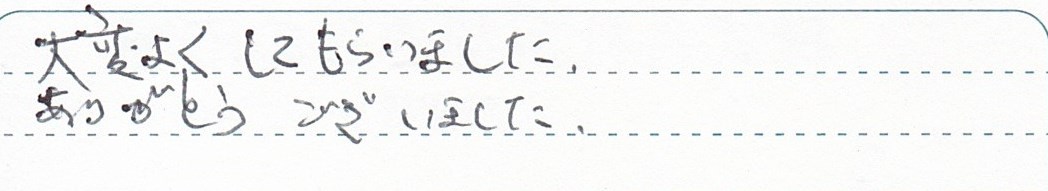 大変よくしてもらいました。
ありがとうございました。